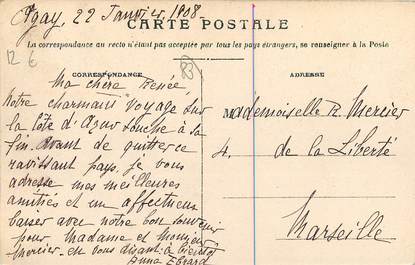 Agay, 22 Janvier 1908.
CARTE POSTALE
La correspondance au recto n'étant pas acceptée par tous les pays étrangers, se renseigner à la Poste
12 €
83
CORRESPONDANCE
Ma chère Renée,
Notre charmant voyage sur
la Côte d'Azur touche à sa
fin. Avant de quitter ce
ravissant pays, je vous
adresse mes meilleures
amitiés et un affectueux
baiser avec notre bon souvenir
pour Madame et Monsieur
Mercier. en vous disant à bientôt
Anna Ebrard
ADRESSE
Mademoiselle R. Mercier
4. de la Liberté
Marseille